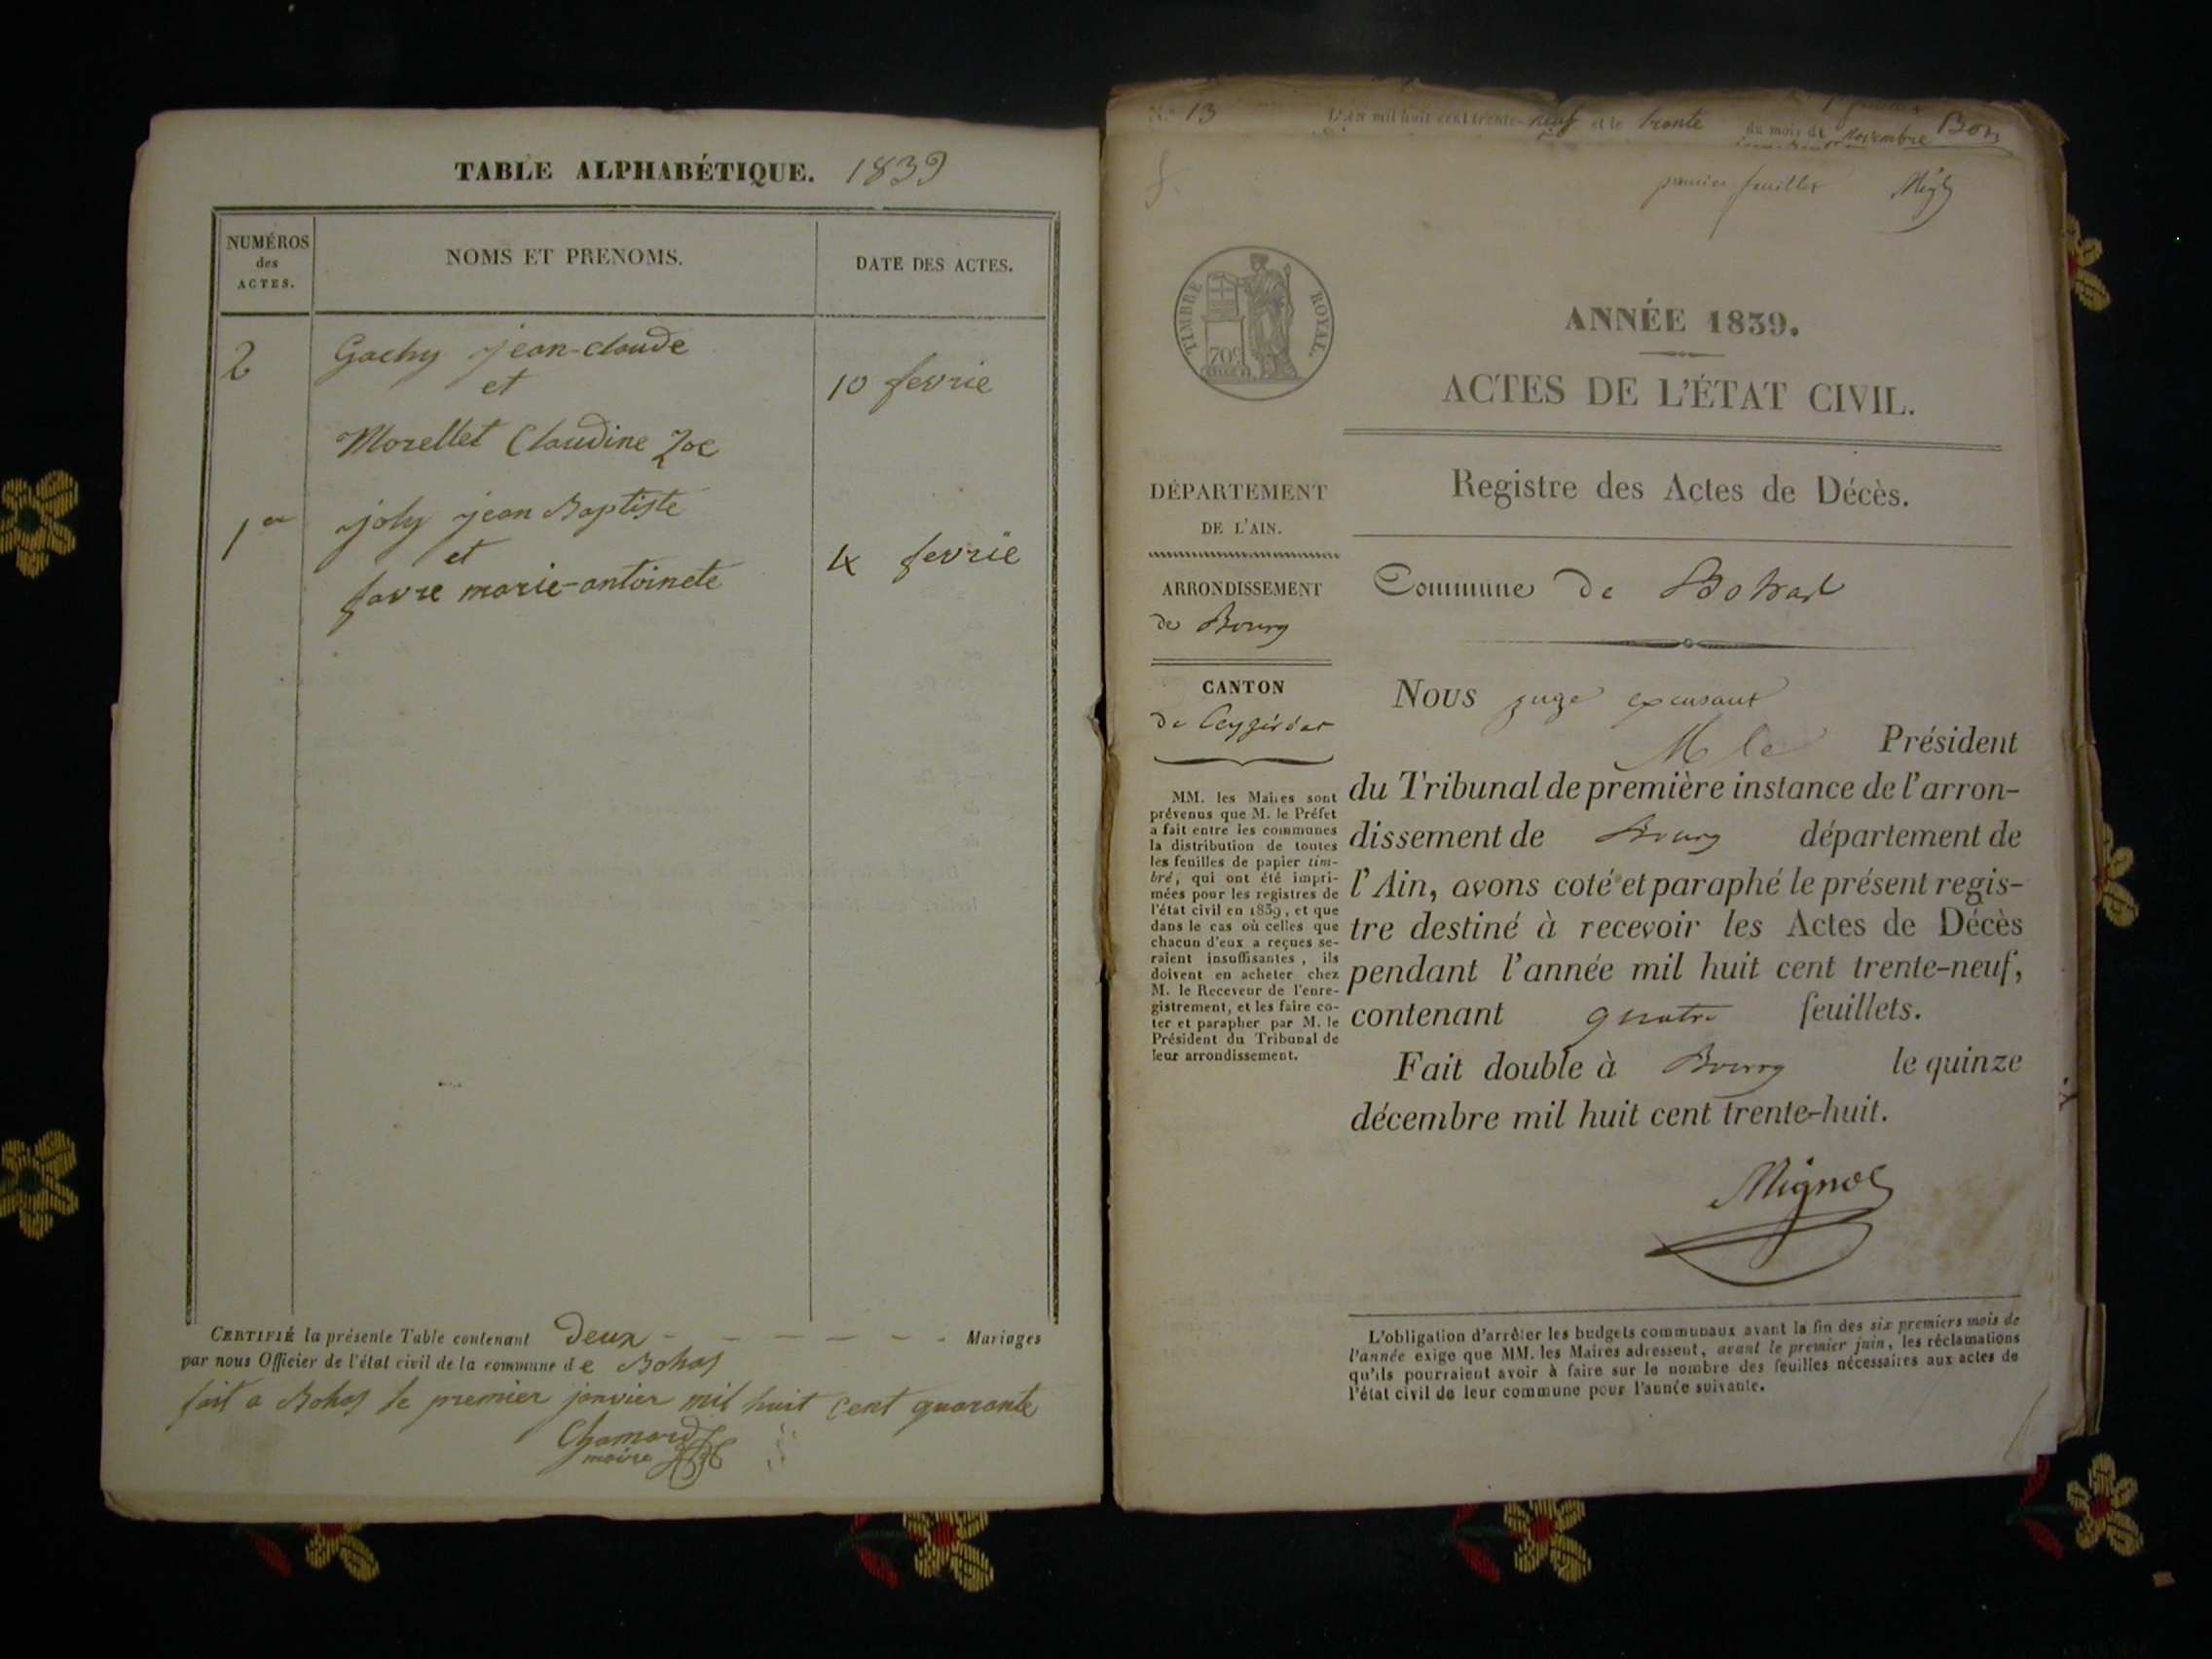 TABLE ALPHABÉTIQUE. 1839
NUMÉROS
des
ACTES.
NOMS ET PRENOMS.
DATE DES ACTES.
2
Gachy jean-claude
et
10 fevrie
Morellet Claudine Zoe
1er
joly jean Baptiste
et
4 fevrie
favre marie-antoinete
CERTIFIÉ la présente Table contenant Deux - - - - - - - Mariages
par nous Officier de l'état civil de la commune de Bohas
fait a Bohas le premier janvier mil huit cent quarante
Chamard
maire
N.º 13 L'an mil huit cent trente-neuf et le trente du mois de novembre Bon
premier feuillet
TIMBRE ROYAL.
70c
ANNÉE 1839.
ACTES DE L'ÉTAT CIVIL.
Registre des Actes de Décès.
DÉPARTEMENT
DE L'AIN.
ARRONDISSEMENT
de Bourg
CANTON
de Ceyzériat
MM. les Maires sont
prévenus que M. le Préfet
a fait entre les communes
la distribution de toutes
les feuilles de papier tim-
bré, qui ont été impri-
mées pour les registres de
l'état civil en 1839, et que
dans le cas où celles que
chacun d'eux a reçues se-
raient insuffisantes, ils
doivent en acheter chez
M. le Receveur de l'enre-
gistrement, et les faire co-
ter et parapher par M. le
Président du Tribunal de
leur arrondissement.
Commune de Bohas
Nous juge excusant
M le Président
du Tribunal de première instance de l'arron-
dissement de Bourg département de
l'Ain, avons coté et paraphé le présent regis-
tre destiné à recevoir les Actes de Décès
pendant l'année mil huit cent trente-neuf,
contenant quatre feuillets.
Fait double à Bourg le quinze
décembre mil huit cent trente-huit.
Mignot
L'obligation d'arrêter les budgets communaux avant la fin des six premiers mois de
l'année exige que MM. les Maires adressent, avant le premier juin, les réclamations
qu'ils pourraient avoir à faire sur le nombre des feuilles nécessaires aux actes de
l'état civil de leur commune pour l'année suivante.